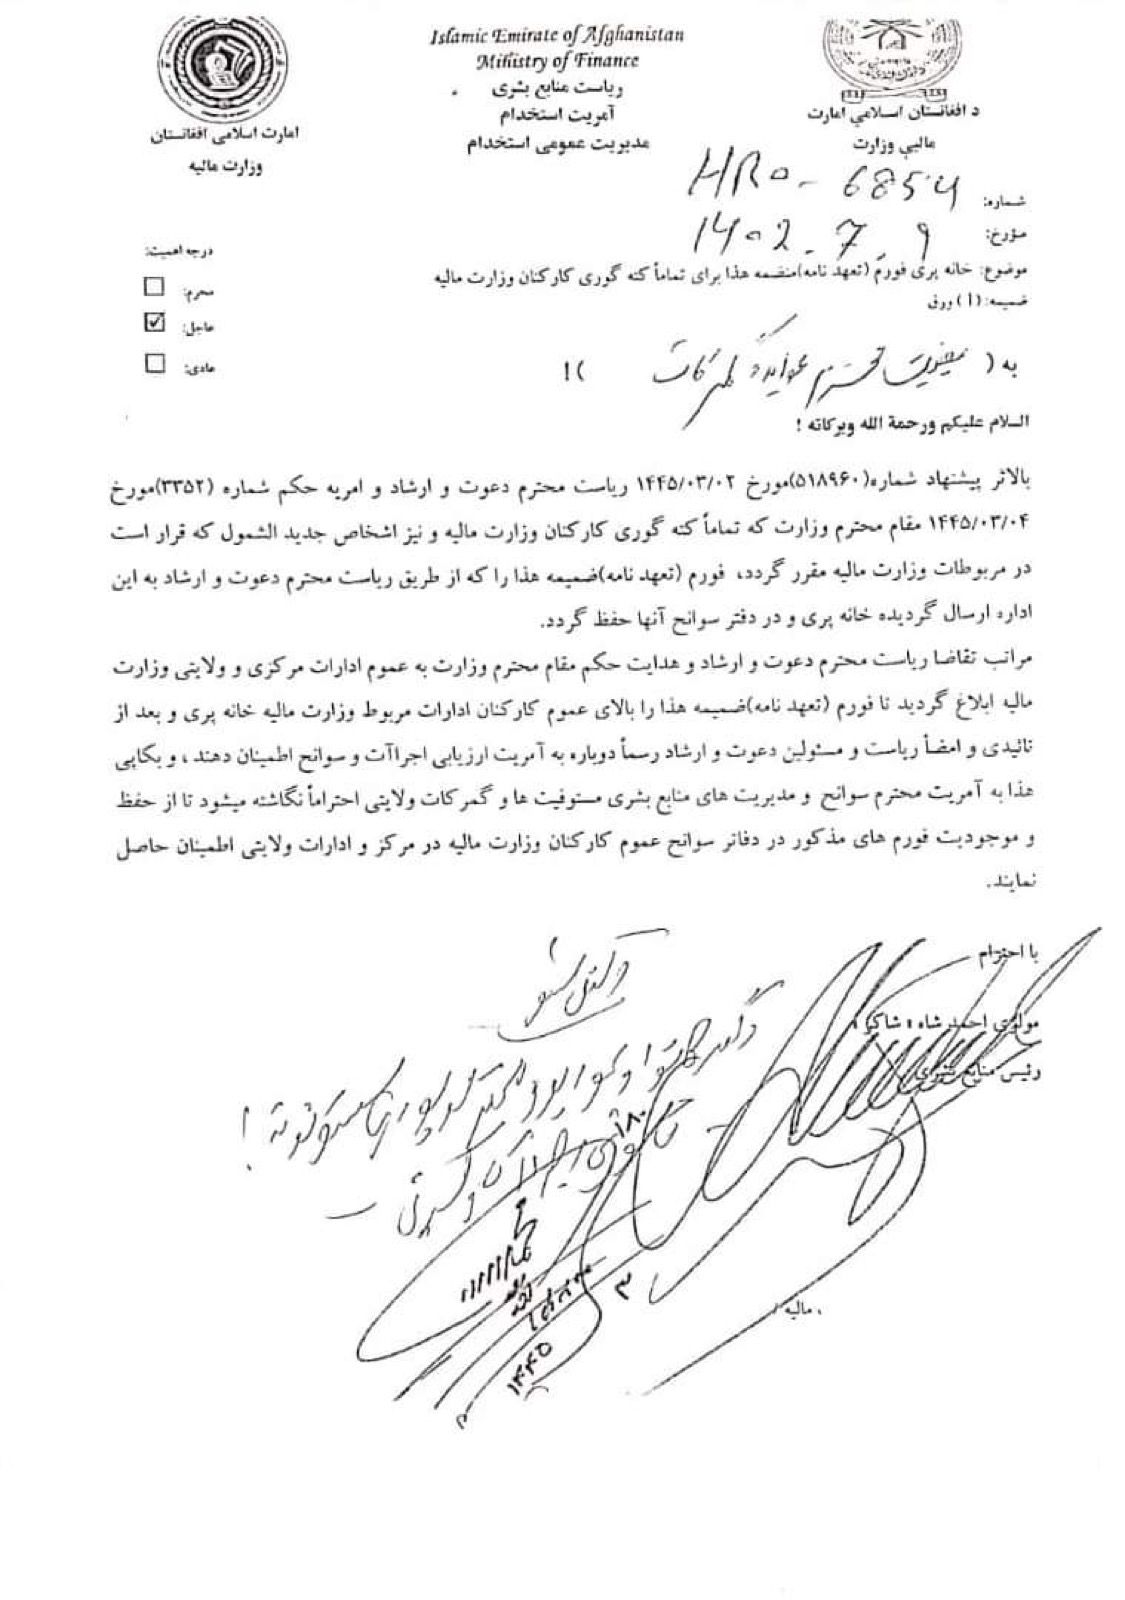 Islamic Emirate of Afghanistan
Ministry of Finance
ریاست منابع بشری
آمریت استخدام
مدیریت عمومی استخدام
د افغانستان اسلامي امارت
ماليې وزارت
امارت اسلامی افغانستان
وزارت مالیه
شماره: HRO - 6854
مؤرخ: 1402 - 7 - 9
درجه اهمیت:
محرم:
عاجل:
عادی:
موضوع: خانه پری فورم (تعهد نامه)منضمه هذا برای تماماً کته گوری کارکنان وزارت مالیه
ضمیمه: (۱) ورق
به ( معینیت محترم عواید و گمرکات )!
السلام علیکم ورحمة الله وبرکاته !
بالاثر پیشنهاد شماره(۵۱۸۹۶۰)مورخ ۱۴۴۵/۰۳/۰۲ ریاست محترم دعوت و ارشاد و امریه حکم شماره (۳۳۵۲)مورخ
۱۴۴۵/۰۳/۰۴ مقام محترم وزارت که تماماً کته گوری کارکنان وزارت مالیه و نیز اشخاص جدید الشمول که قرار است
در مربوطات وزارت مالیه مقرر گردد، فورم (تعهد نامه)ضمیمه هذا را که از طریق ریاست محترم دعوت و ارشاد به این
اداره ارسال گردیده خانه پری و در دفتر سوانح آنها حفظ گردد.
مراتب تقاضا ریاست محترم دعوت و ارشاد و هدایت حکم مقام محترم وزارت به عموم ادارات مرکزی و ولایتی وزارت
مالیه ابلاغ گردید تا فورم (تعهد نامه)ضمیمه هذا را بالای عموم کارکنان ادارات مربوط وزارت مالیه خانه پری و بعد از
تائیدی و امضأ ریاست و مسئولین دعوت و ارشاد رسماً دوباره به آمریت ارزیابی اجراآت و سوانح اطمینان دهند ، و بکاپی
هذا به آمریت محترم سوانح و مدیریت های منابع بشری مستوفیت ها و گمرکات ولایتی احتراماً نگاشته میشود تا از حفظ
و موجودیت فورم های مذکور در دفاتر سوانح عموم کارکنان وزارت مالیه در مرکز و ادارات ولایتی اطمینان حاصل
نمایند.
با احترام
مولوی احمد شاه « شاکر »
رئیس منابع بشری
۳
۱۴۴۵
مالیه /